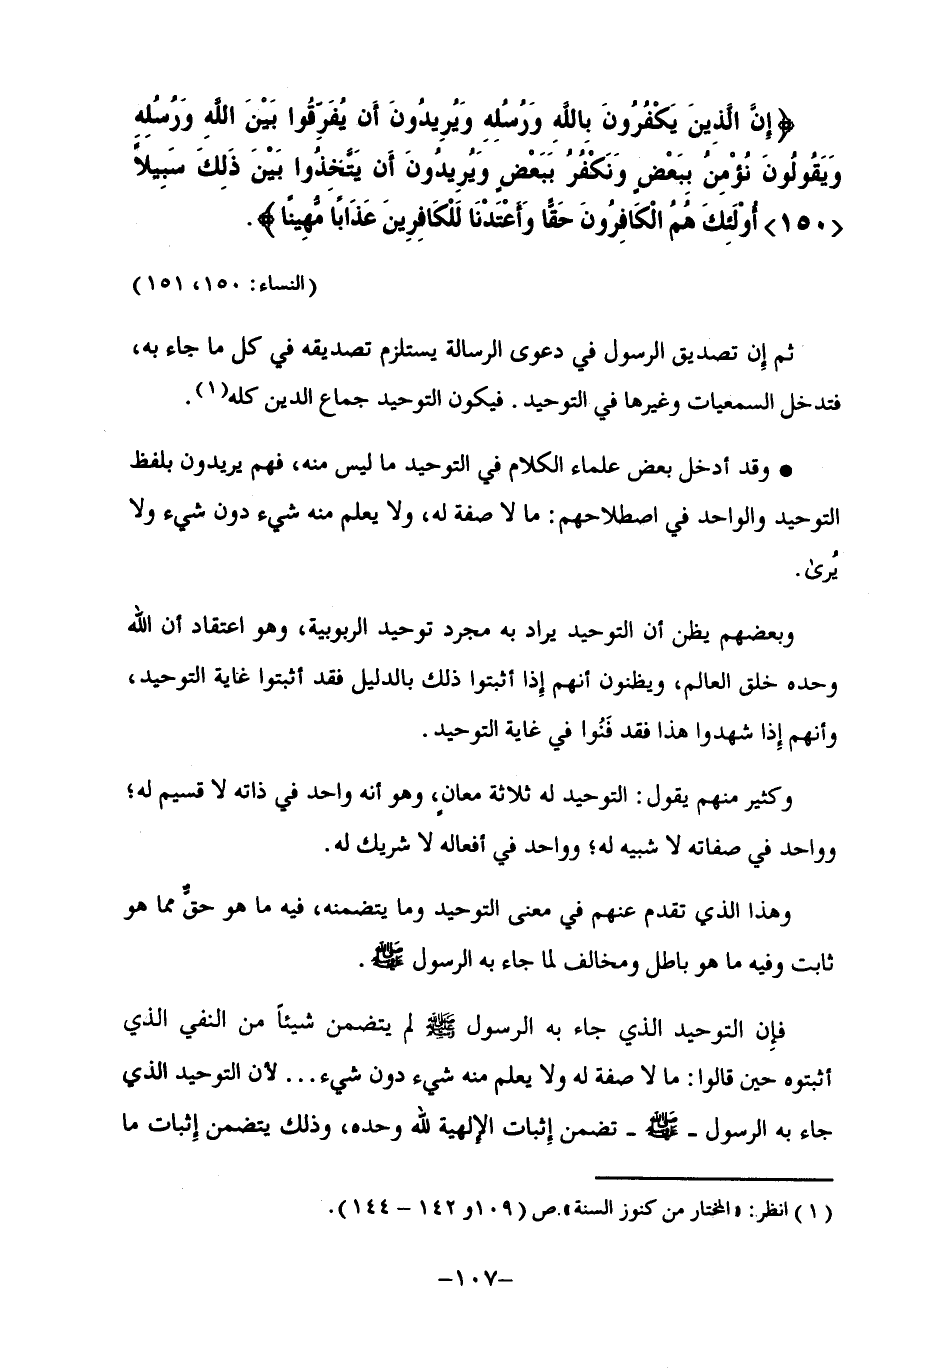 ﴿إِنَّ الَّذِينَ يَكْفُرُونَ بِاللَّهِ وَرُسُلِهِ وَيُرِيدُونَ أَن يُفَرِّقُوا بَيْنَ اللَّهِ وَرُسُلِهِ
وَيَقُولُونَ نُؤْمِنُ بِبَعْضٍ وَنَكْفُرُ بِبَعْضٍ وَيُرِيدُونَ أَن يَتَّخِذُوا بَيْنَ ذَلِكَ سَبِيلاً
<١٥٠> أُوْلَئِكَ هُمُ الْكَافِرُونَ حَقًّا وَأَعْتَدْنَا لِلْكَافِرِينَ عَذَابًا مُّهِينًا﴾.
(النساء: ١٥٠، ١٥١)
ثم إِن تصديق الرسول في دعوى الرسالة يستلزم تصديقه في كل ما جاء به،
فتدخل السمعيات وغيرها في التوحيد. فيكون التوحيد جماع الدين كله(١).
● وقد أدخل بعض علماء الكلام في التوحيد ما ليس منه، فهم يريدون بلفظ
التوحيد والواحد في اصطلاحهم: ما لا صفة له، ولا يعلم منه شيء دون شيء ولا
يُرىٰ.
وبعضهم يظن أن التوحيد يراد به مجرد توحيد الربوبية، وهو اعتقاد أن الله
وحده خلق العالم، ويظنون أنهم إِذا أثبتوا ذلك بالدليل فقد أثبتوا غاية التوحيد،
وأنهم إِذا شهدوا هذا فقد فَنُوا في غاية التوحيد.
وكثير منهم يقول: التوحيد له ثلاثة معانٍ، وهو أنه واحد في ذاته لا قسيم له؛
وواحد في صفاته لا شبيه له؛ وواحد في أفعاله لا شريك له.
وهذا الذي تقدم عنهم في معنى التوحيد وما يتضمنه، فيه ما هو حقٌّ مما هو
ثابت وفيه ما هو باطل ومخالف لما جاء به الرسول ﷺ.
فإِن التوحيد الذي جاء به الرسول ﷺ لم يتضمن شيئاً من النفي الذي
أثبتوه حين قالوا: ما لا صفة له ولا يعلم منه شيء دون شيء... لأن التوحيد الذي
جاء به الرسول ـ ﷺ ـ تضمن إِثبات الإِلهية لله وحده، وذلك يتضمن إِثبات ما
(١) انظر: «المختار من كنوز السنة».ص (١٠٩و ١٤٢ – ١٤٤).
–١٠٧–